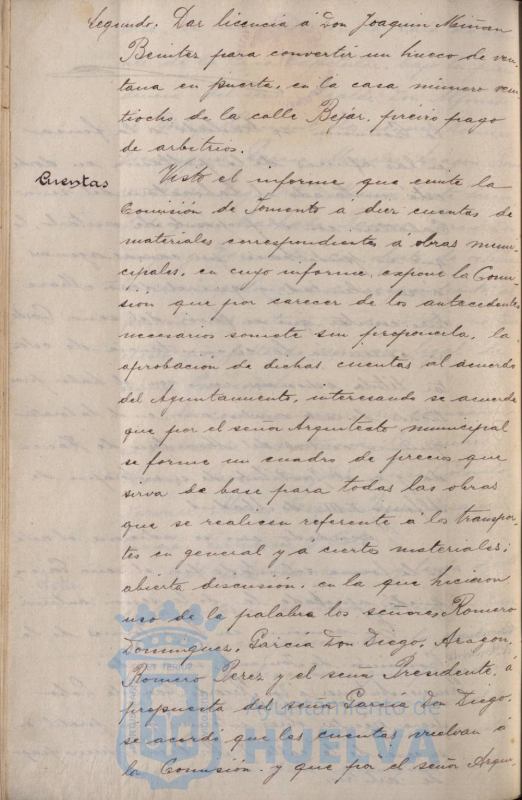 Segundo. Dar licencia á Don Joaquin Miñan
Benitez para convertir un hueco de ven-
tana en puerta, en la casa número vein
tiocho de la calle Bejár, previo pago
de arbitrios.
Cuentas
Visto el informe que emite la
Comisión de Fomento á diez cuentas de
materiales correspondientes á obras muni-
cipales, en cuyo informe, expone la Comi-
sión que por carecer de los antecedentes
necesarios somete sin proponerla, la
aprobacion de dichas cuentas al acuerdo
del Ayuntamiento, interesando se acuerde
que por el señor Arquitecto municipal
se forme un cuadro de precios que
sirva de base para todas las obras
que se realicen referente á los transpor-
tes en general y á ciertos materiales;
abierta discusión, en la que hicieron
uso de la palabra los señores, Romero
Dominguez, García Don Diego, Aragon,
Romero Perez y el señor Presidente, á
propuesta del señor García Don Diego,
se acordó que las cuentas vuelvan á
la Comisión y que por el señor Arqui-
Ayuntamiento de
HUELVA